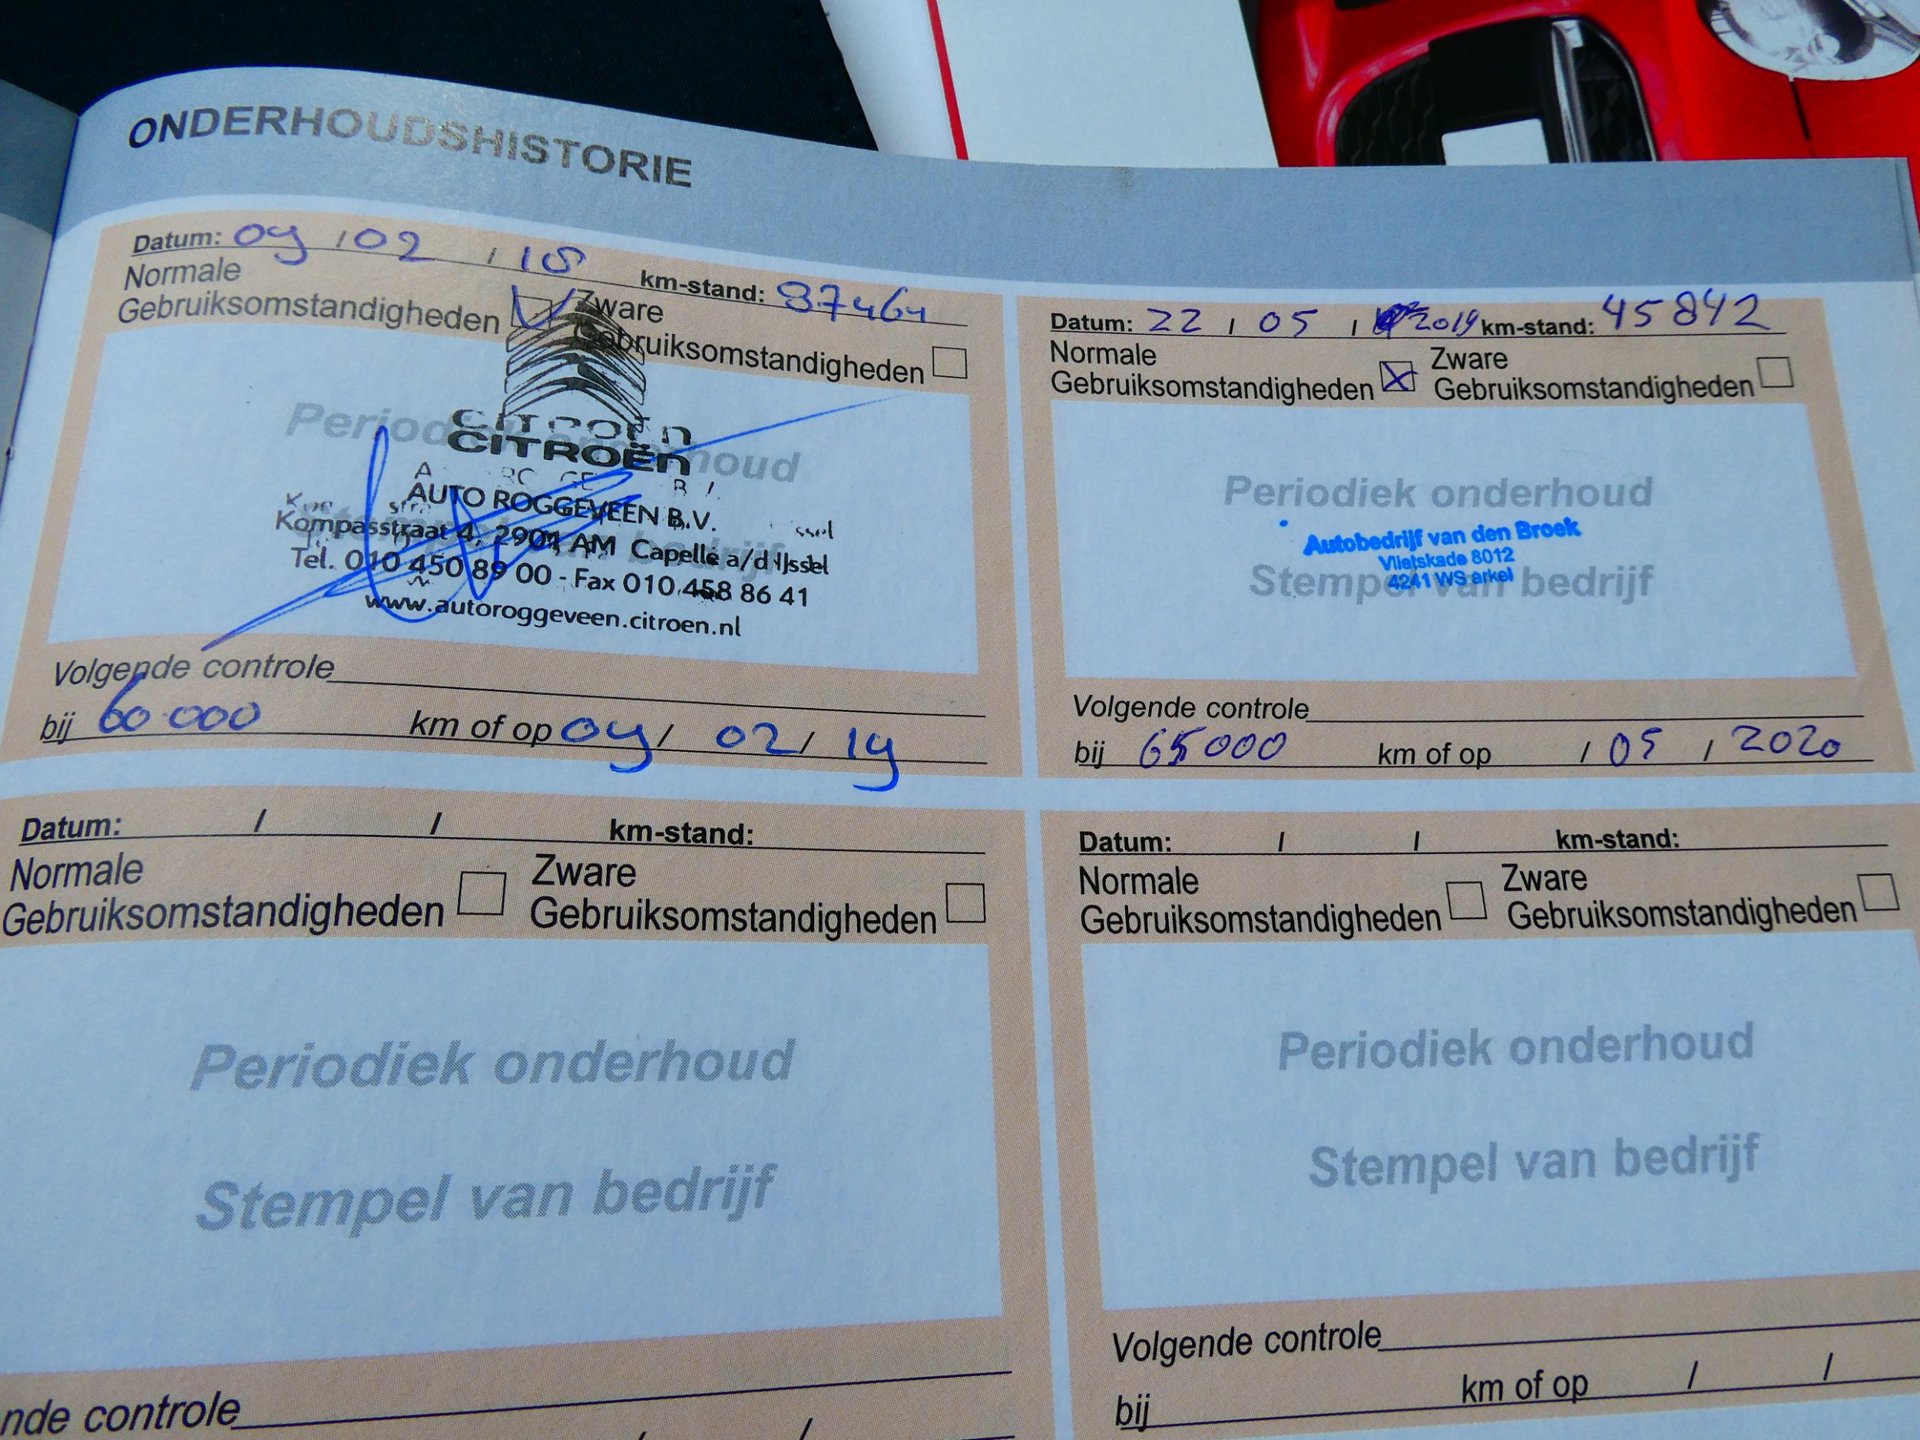 ONDERHOUDSHISTORIE
Datum: 09 / 02 / 18 km-stand: 37464
Normale
Gebruiksomstandigheden
Zware
Gebruiksomstandigheden
Periodiek onderhoud
CITROËN
CITROËN
AUTO ROGGEVEEN B.V.
Kompasstraat 4, 2901 AM Capelle a/d IJssel
Tel. 010 450 89 00 - Fax 010 458 86 41
www.autoroggeveen.citroen.nl
Volgende controle
bij 60 000 km of op 09 / 02 / 19
Datum: 22 / 05 / 2019 km-stand: 45842
Normale
Gebruiksomstandigheden
Zware
Gebruiksomstandigheden
Periodiek onderhoud
Autobedrijf van den Broek
Vlietskade 8012
4241 WS arkel
Stempel van bedrijf
Volgende controle
bij 65000 km of op / 05 / 2020
Datum: / / km-stand:
Normale
Gebruiksomstandigheden
Zware
Gebruiksomstandigheden
Periodiek onderhoud
Stempel van bedrijf
nde controle
/ /
Datum: / / km-stand:
Normale
Gebruiksomstandigheden
Zware
Gebruiksomstandigheden
Periodiek onderhoud
Stempel van bedrijf
Volgende controle
bij km of op / /